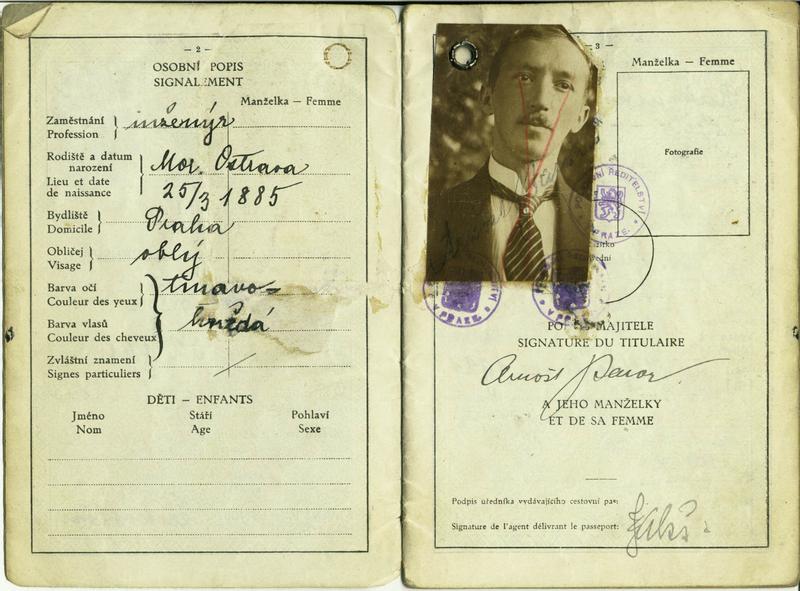 — 2 —
OSOBNÍ POPIS
SIGNALEMENT
Manželka — Femme
Zaměstnání
Profession
inženýr
Rodiště a datum
narození
Lieu et date
de naissance
Mor. Ostrava
25/3 1885
Bydliště
Domicile
Praha
Obličej
Visage
oblý
Barva očí
Couleur des yeux
tmavo-
Barva vlasů
Couleur des cheveux
hnědá
Zvláštní znamení
Signes particuliers
DĚTI - ENFANTS
Jméno Stáří Pohlaví
Nom Age Sexe
3 —
Manželka — Femme
Fotografie
ŘEDITELSTVÍ
V PRAZE
V PRAZE.
V PRAZE
MAJITELE
SIGNATURE DU TITULAIRE
Arnošt
A JEHO MANŽELKY
ET DE SA FEMME
Podpis úředníka vydávajícího cestovní pas:
Signature de l'agent délivrant le passeport: